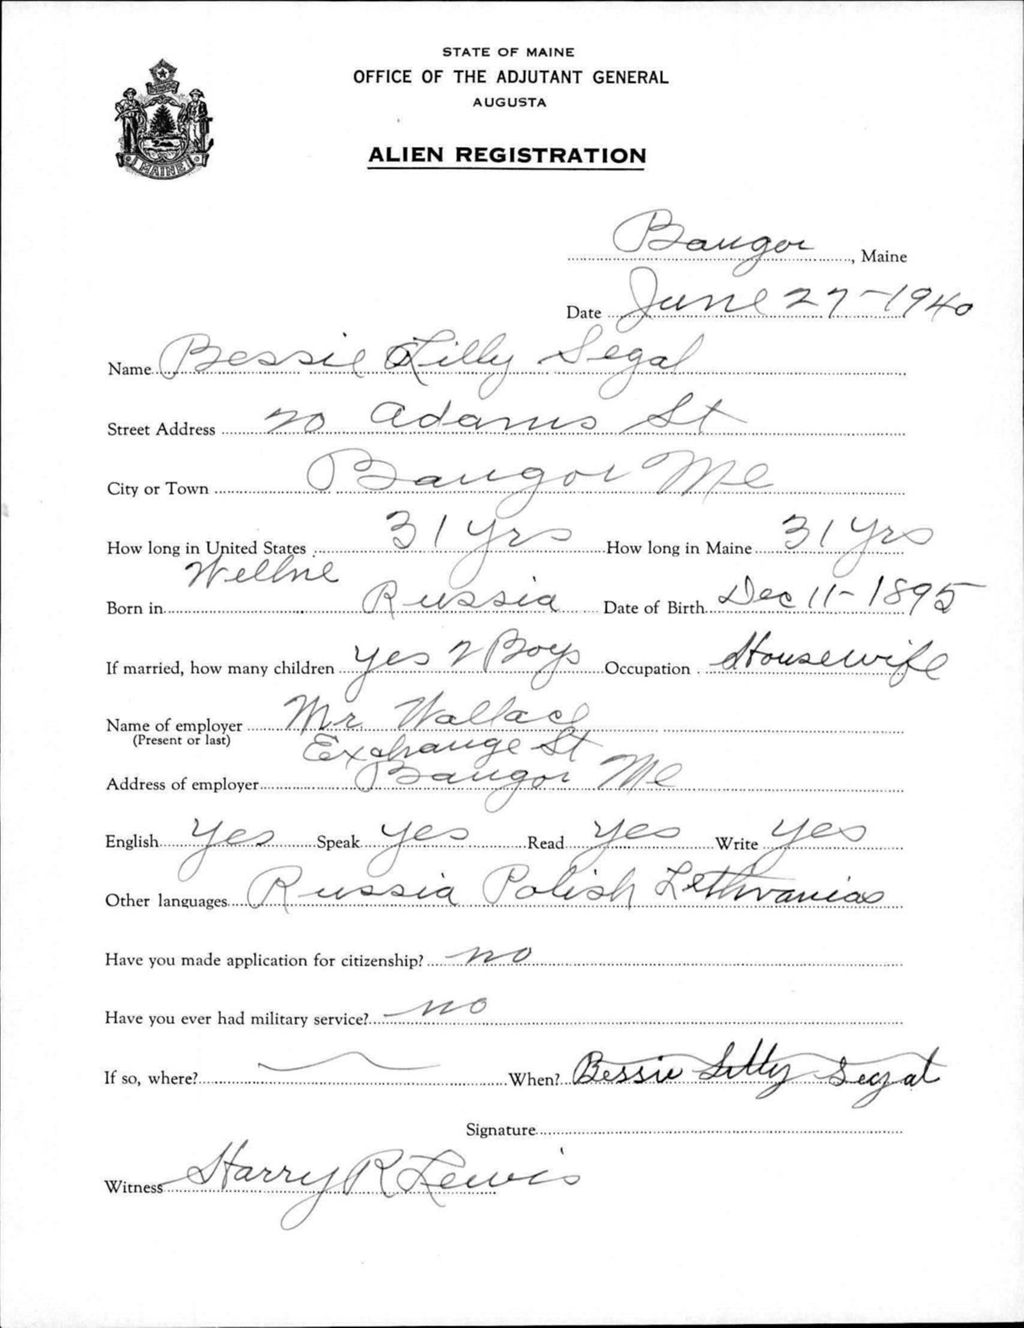 STATE OF MAINE
OFFICE OF THE ADJUTANT GENERAL
AUGUSTA
ALIEN REGISTRATION
MAINE
Bangor, Maine
Date June 27-1940
Name Bessie Lilly Segal
Street Address 20 Adams St
City or Town Bangor Me
How long in United States 31 yrs How long in Maine 31 yrs
Wellne
Born in Russia Date of Birth Dec 11-1895
If married, how many children yes 2 Boys Occupation Housewife
Name of employer Mr. Wallace
(Present or last) Exchange St
Address of employer Bangor Me
English yes Speak yes Read yes Write yes
Other languages Russia Polish Lethvanias
Have you made application for citizenship? no
Have you ever had military service? no
If so, where? When? Bessie Lilly Segal
Signature
Witness Harry R Lewis